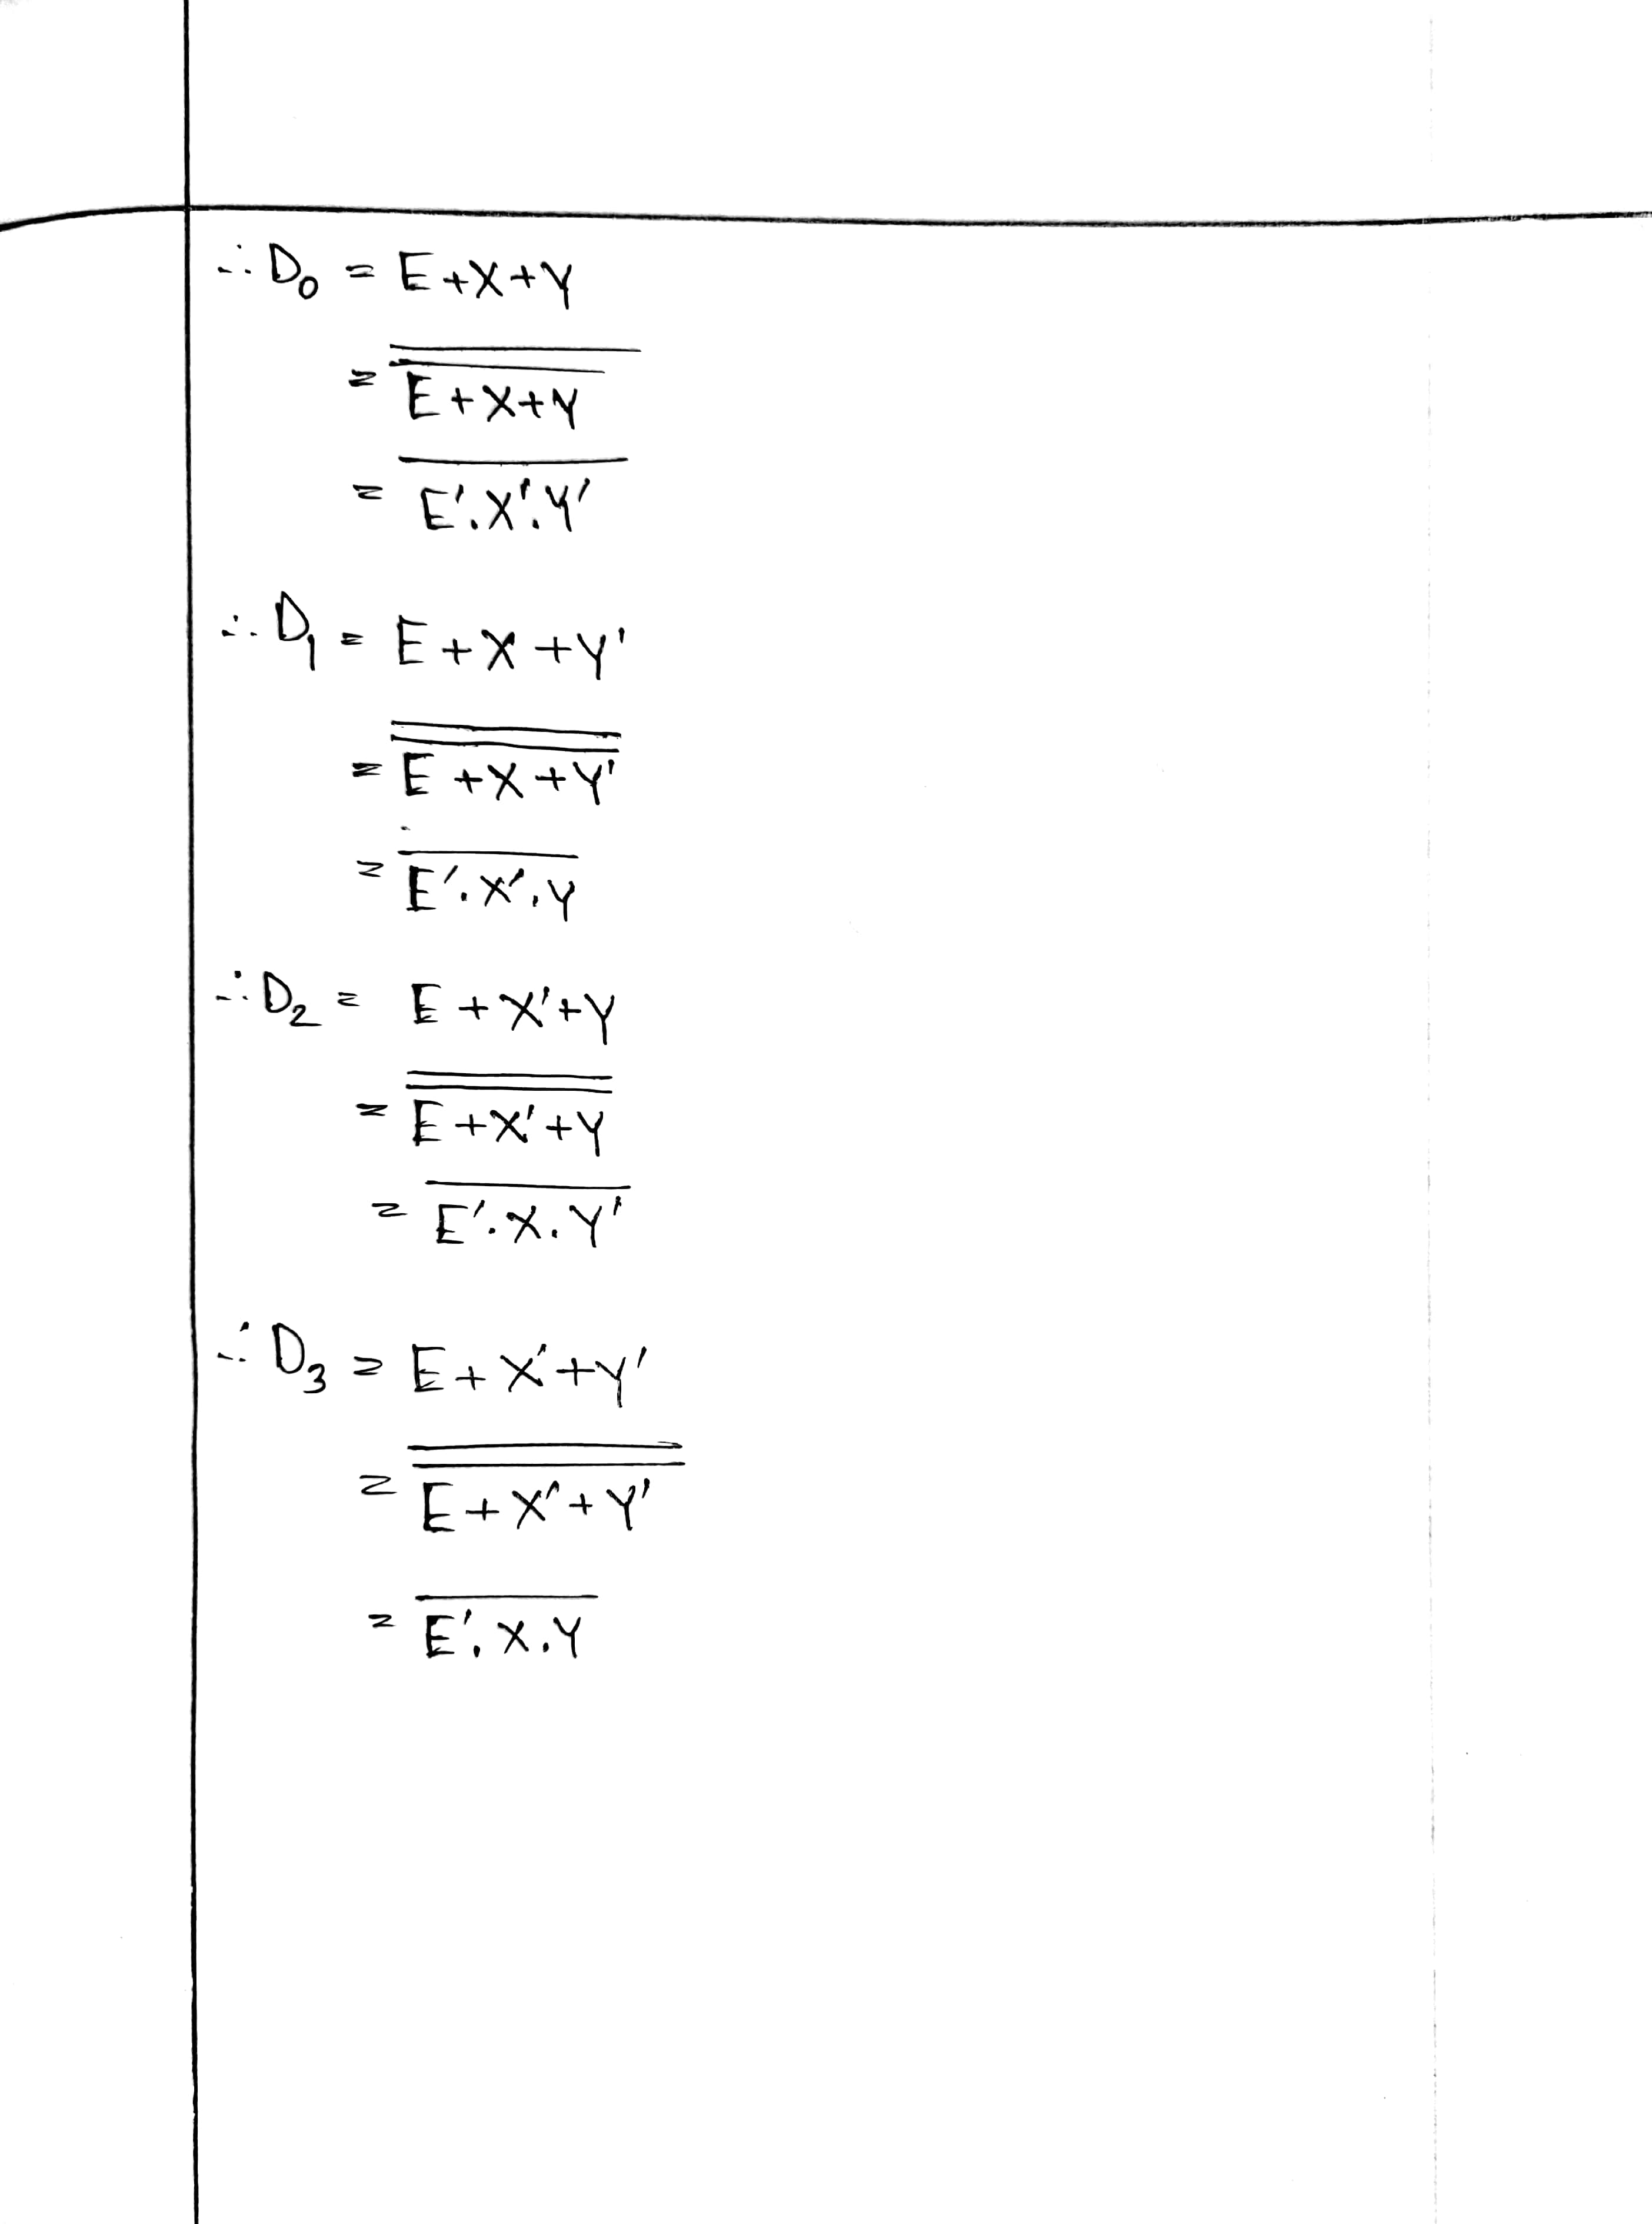 ∴ D₀ = E+X+Y
= \overline{\overline{E+X+Y}}
= \overline{E'.X'.Y'}
∴ D₁ = E+X+Y'
= \overline{\overline{E+X+Y'}}
= \overline{E'.X'.Y}
∴ D₂ = E+X'+Y
= \overline{\overline{E+X'+Y}}
= \overline{E'.X.Y'}
∴ D₃ = E+X'+Y'
= \overline{\overline{E+X'+Y'}}
= \overline{E'.X.Y}